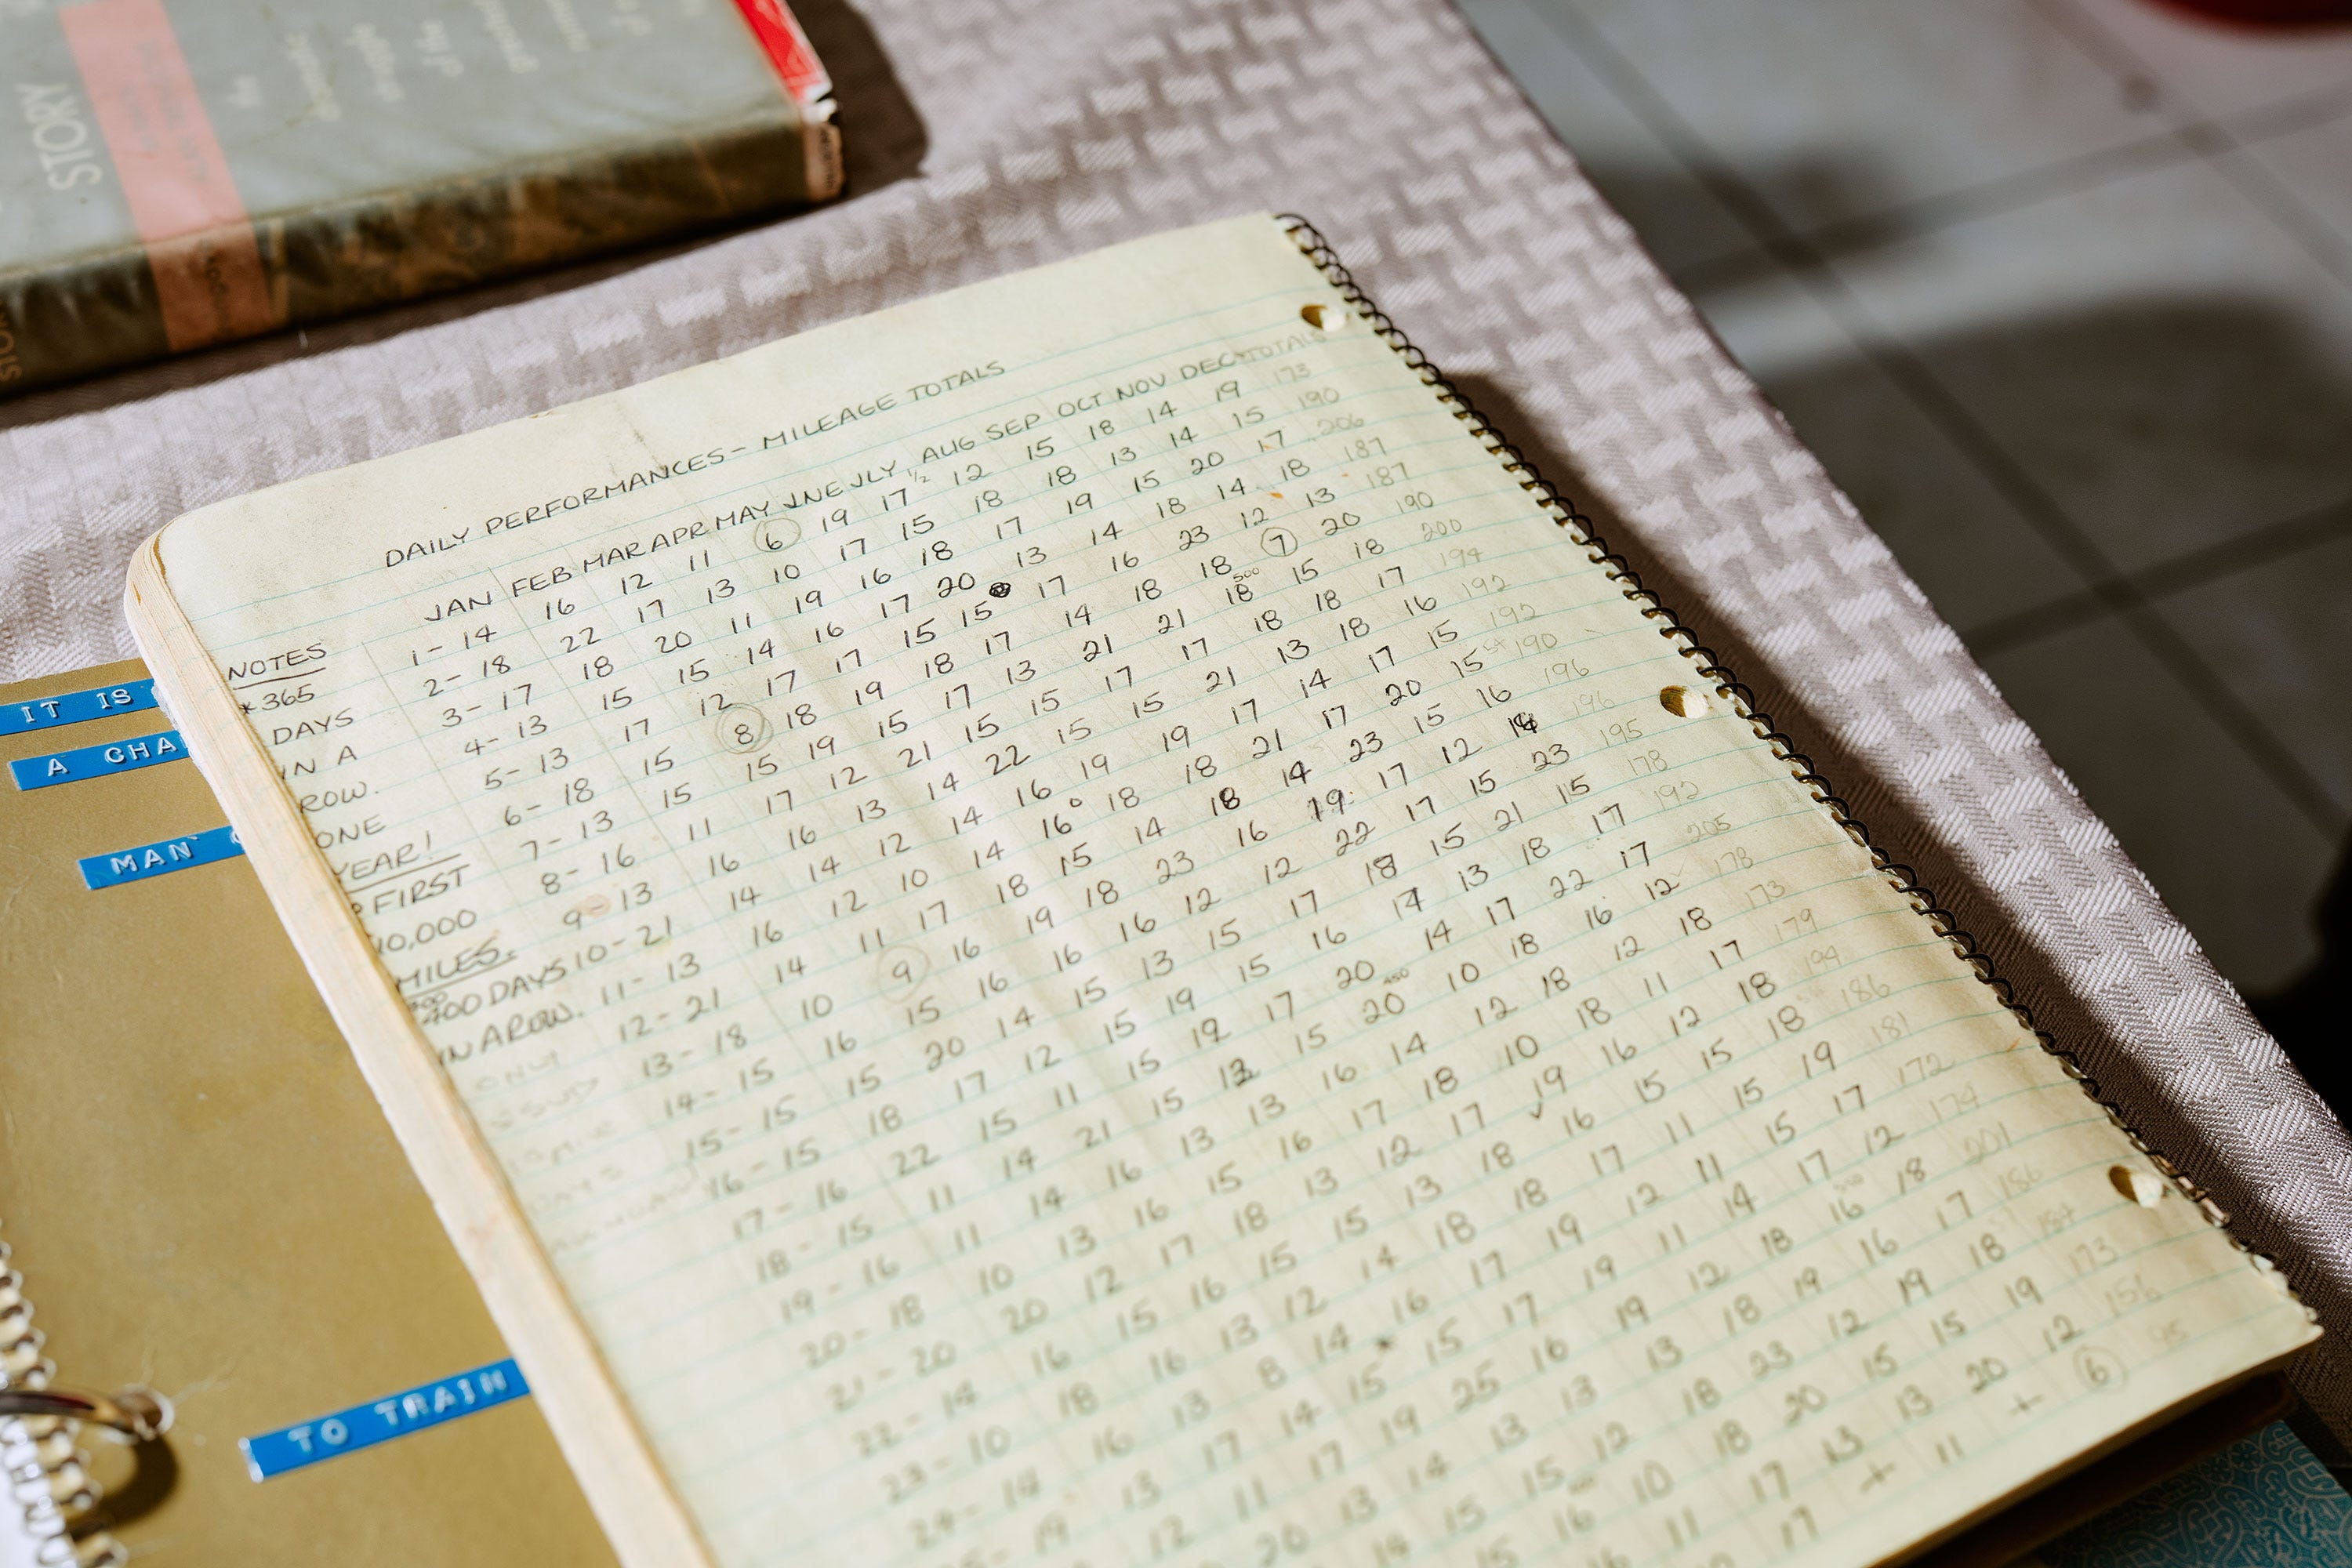 STORY
DAILY PERFORMANCES - MILEAGE TOTALS
JAN FEB MAR APR MAY JNE JLY AUG SEP OCT NOV DEC TOTALS
1- 14 16 12 11 6 19 17½ 12 15 18 14 19 173
2- 18 22 17 13 10 17 15 18 18 13 14 15 190
3- 17 18 20 11 19 16 18 17 19 15 20 17 206
4- 13 15 15 14 16 17 20 13 14 18 14 18 187
5- 13 17 12 17 17 15 15 17 16 23 12 13 187
6- 18 15 8 18 19 18 17 14 18 18 7 20 190
7- 13 15 15 19 15 17 13 21 21 18 500 15 18 200
8- 16 11 17 12 21 15 15 17 17 18 18 17 194
9- 13 16 16 13 14 22 15 15 21 13 18 16 192
10- 21 14 14 12 14 16 19 19 17 14 17 15 192
11- 13 16 12 10 14 16 18 18 21 17 20 15 190
12- 21 14 11 17 18 15 14 18 14 23 15 16 196
13- 18 10 9 16 19 18 23 16 19 17 12 196
14- 15 16 15 16 16 16 12 12 22 17 15 23 195
15- 15 15 20 14 15 13 15 17 18 15 21 15 178
16- 15 18 17 12 15 19 15 16 17 13 18 17 192
17- 16 22 15 11 15 19 17 20 14 17 22 17 205
18- 15 11 14 21 15 12 15 20 10 18 16 12 178
19- 16 11 14 16 13 13 16 14 12 18 12 18 173
20- 18 10 13 16 15 16 17 18 10 18 11 17 179
21- 20 20 12 17 18 13 12 17 19 16 12 18 194
22- 14 16 15 16 15 15 13 18 16 15 15 18 186
23- 10 18 16 13 12 14 18 18 17 11 15 19 181
24- 14 16 13 8 14 16 17 19 12 11 15 17 172
19 13 17 14 15 15 17 19 11 14 17 12 174
12 11 17 19 25 16 19 12 18 16 18 201
20 13 14 13 13 13 18 19 16 17 186
15 12 18 23 12 19 18 184
16 10 18 20 15 15 19 173
11 17 13 13 20 12 156
17 + 11 + 6 95
NOTES
*365
DAYS
IN A
ROW.
ONE
YEAR!
FIRST
10,000
MILES.
400 DAYS
IN A ROW.
ONLY
IT IS
A CHA
MAN
TO TRAIN